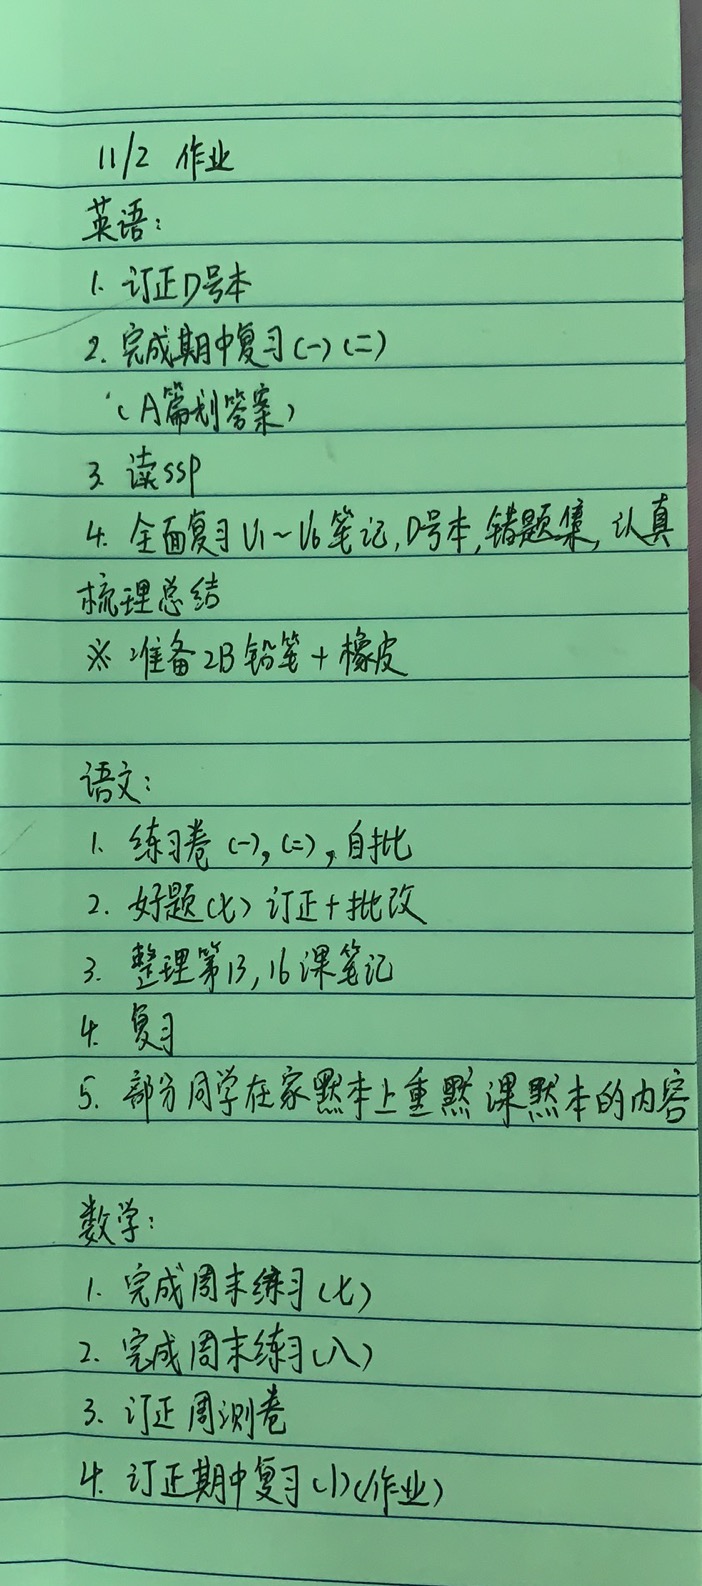 11/2 作业
英语：
1. 订正D号本
2. 完成期中复习(一)(二)
(A篇划答案)
3. 读SSP
4. 全面复习U1～U6笔记，D号本，错题集，认真
梳理总结
※ 准备2B铅笔+橡皮
语文：
1. 练习卷(一)，(二)，自批
2. 好题(七)订正+批改
3. 整理第13，16课笔记
4. 复习
5. 部分同学在家默本上重默课默本的内容
数学：
1. 完成周末练习(七)
2. 完成周末练习(八)
3. 订正周测卷
4. 订正期中复习(1)(作业)